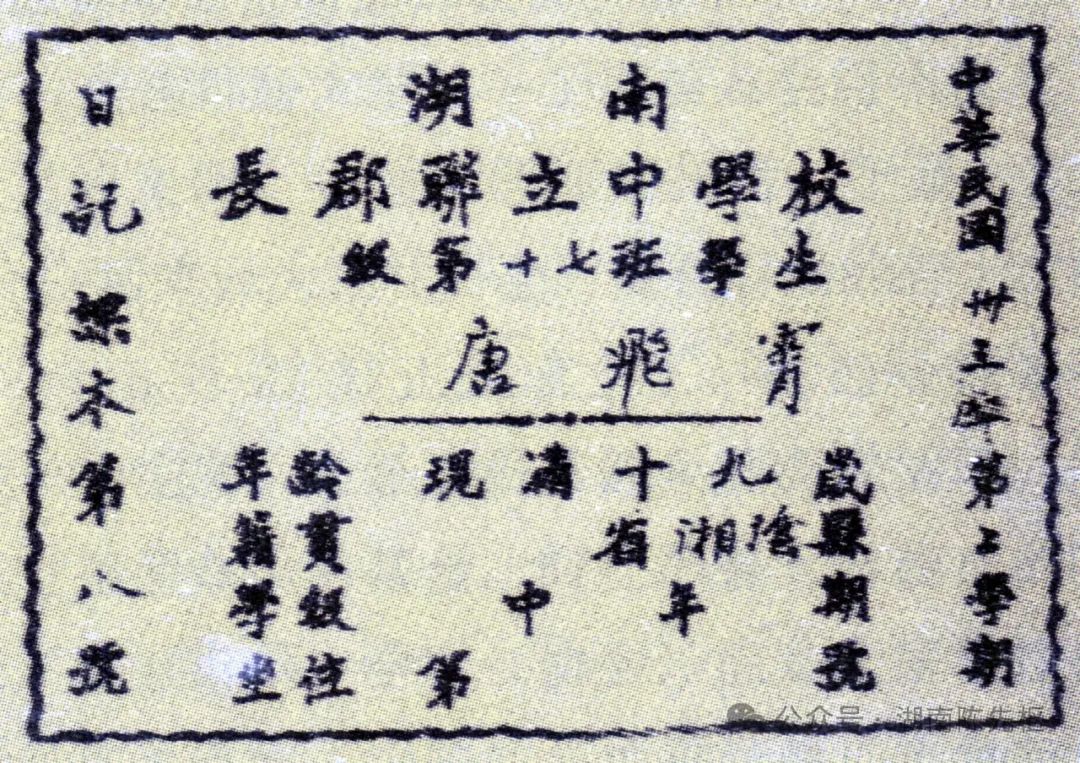 湖南
長郡聯立中學校
級第十七班學生
唐飛霄
年齡 現滿十九歲
籍貫 省湘陰縣
學級 中 年 期
坐位 第 號
日記課本第八號
中華民國卅三年第二學期
公众号·湖南陈先枢